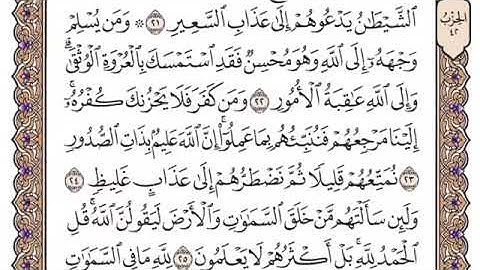 ٱلشَّيۡطَٰنُ يَدۡعُوهُمۡ إِلَىٰ عَذَابِ ٱلسَّعِيرِ ٢١ ۞ وَمَن يُسۡلِمۡ
وَجۡهَهُۥٓ إِلَى ٱللَّهِ وَهُوَ مُحۡسِنٞ فَقَدِ ٱسۡتَمۡسَكَ بِٱلۡعُرۡوَةِ ٱلۡوُثۡقَىٰۗ
وَإِلَى ٱللَّهِ عَٰقِبَةُ ٱلۡأُمُورِ ٢٢ وَمَن كَفَرَ فَلَا يَحۡزُنكَ كُفۡرُهُۥٓۚ
إِلَيۡنَا مَرۡجِعُهُمۡ فَنُنَبِّئُهُم بِمَا عَمِلُوٓاْۚ إِنَّ ٱللَّهَ عَلِيمُۢ بِذَاتِ ٱلصُّدُورِ
٢٣ نُمَتِّعُهُمۡ قَلِيلٗا ثُمَّ نَضۡطَرُّهُمۡ إِلَىٰ عَذَابٍ غَلِيظٖ ٢٤
وَلَئِن سَأَلۡتَهُم مَّنۡ خَلَقَ ٱلسَّمَٰوَٰتِ وَٱلۡأَرۡضَ لَيَقُولُنَّ ٱللَّهُۚ قُلِ
ٱلۡحَمۡدُ لِلَّهِۚ بَلۡ أَكۡثَرُهُمۡ لَا يَعۡلَمُونَ ٢٥ لِلَّهِ مَا فِي ٱلسَّمَٰوَٰتِ
الحزب
٤٢